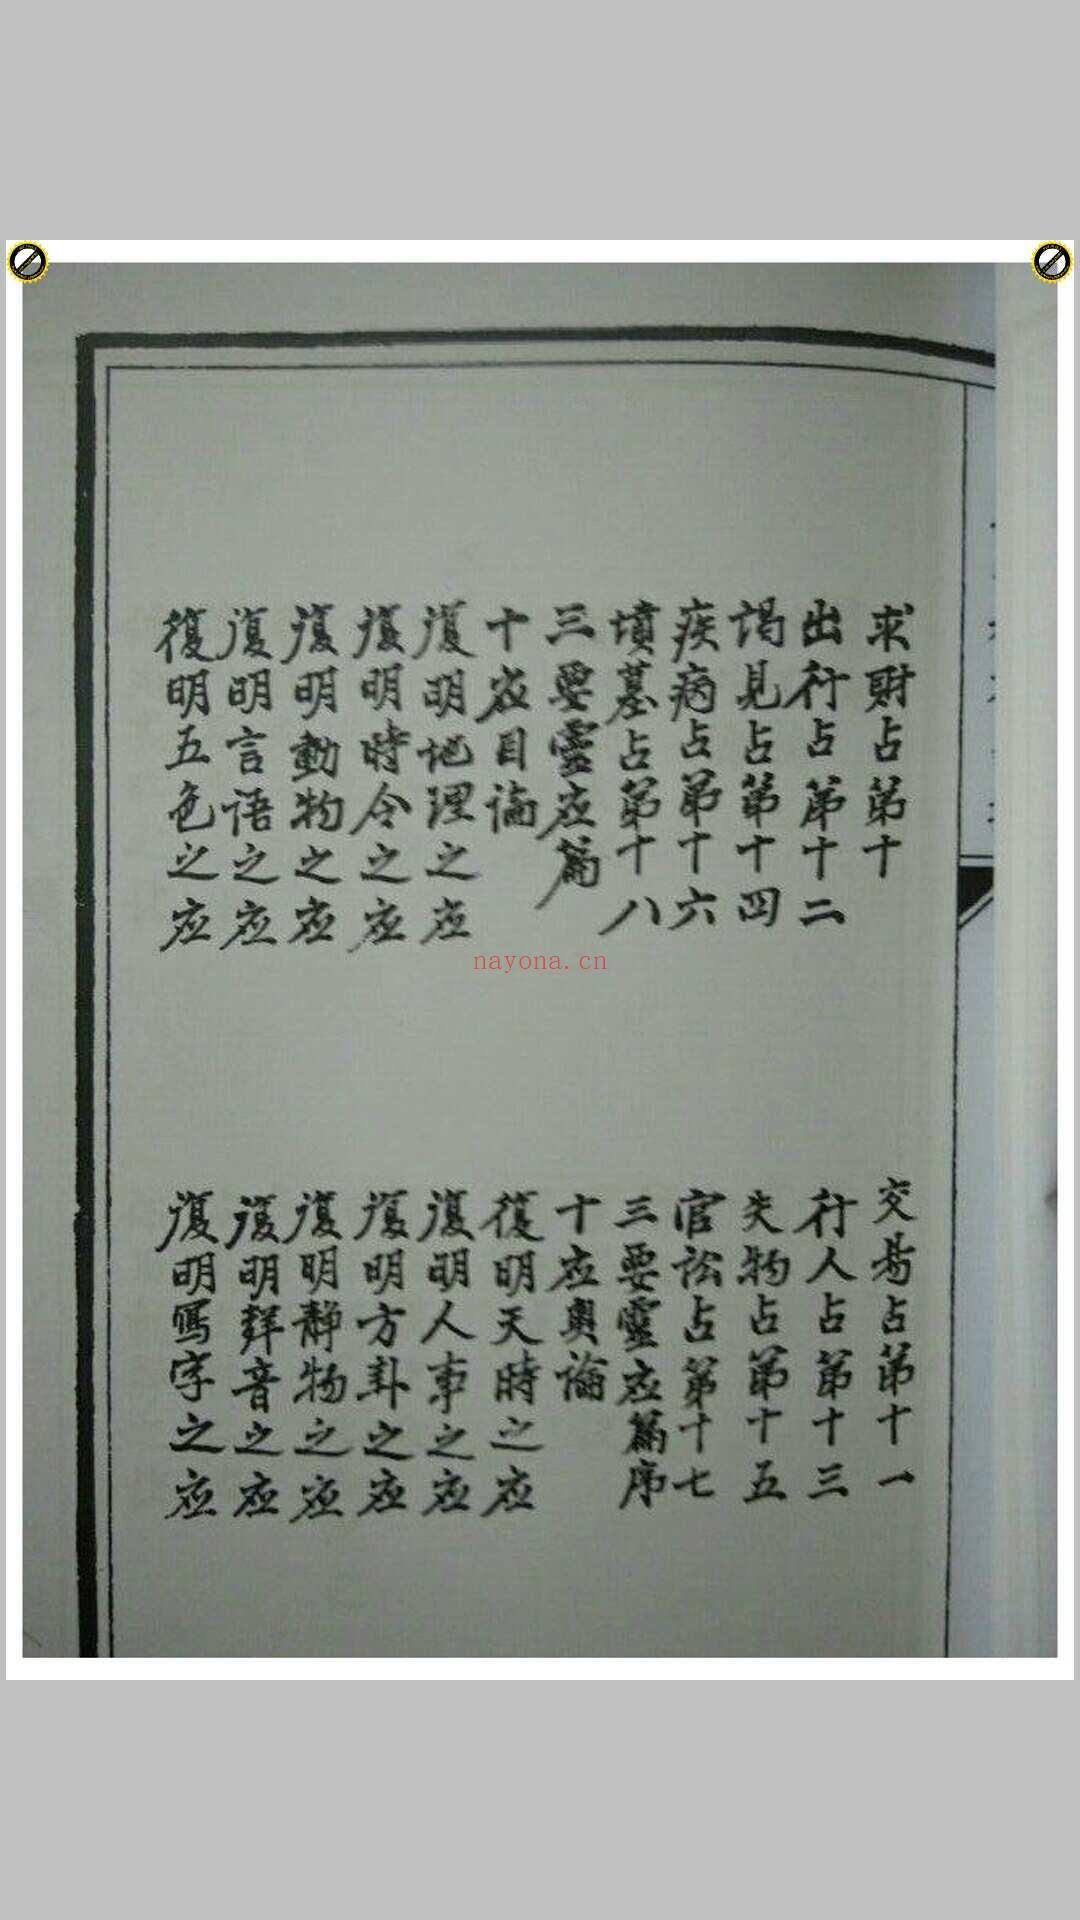 求財占第十
交易占第十一
出行占第十二
行人占第十三
謁見占第十四
失物占第十五
疾病占第十六
官訟占第十七
墳墓占第十八
三要靈应篇序
三要靈应篇
十应奧論
十应目論
復明天時之应
復明地理之应
復明人事之应
復明時令之应
復明方卦之应
復明動物之应
復明静物之应
復明言語之应
復明聲音之应
復明五色之应
復明寫字之应
nayona.cn